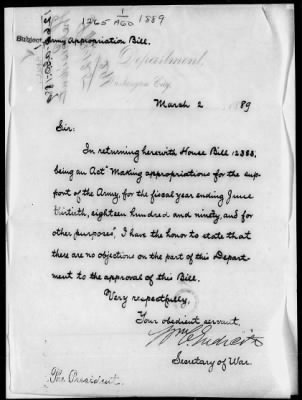 1265 1/AGO 1889
Subject, Army Appropriation Bill.
Department,
Washington City,
March 2 1889
Sir:
In returning herewith House Bill 12383,
being an Act "Making appropriations for the sup-
port of the Army, for the fiscal year ending June
thirtieth, eighteen hundred and ninety, and for
other purposes", I have the honor to state that
there are no objections on the part of this Depart-
ment to the approval of this Bill.
Very respectfully,
Your obedient servant,
Wm C Endicott
Secretary of War.
The President.